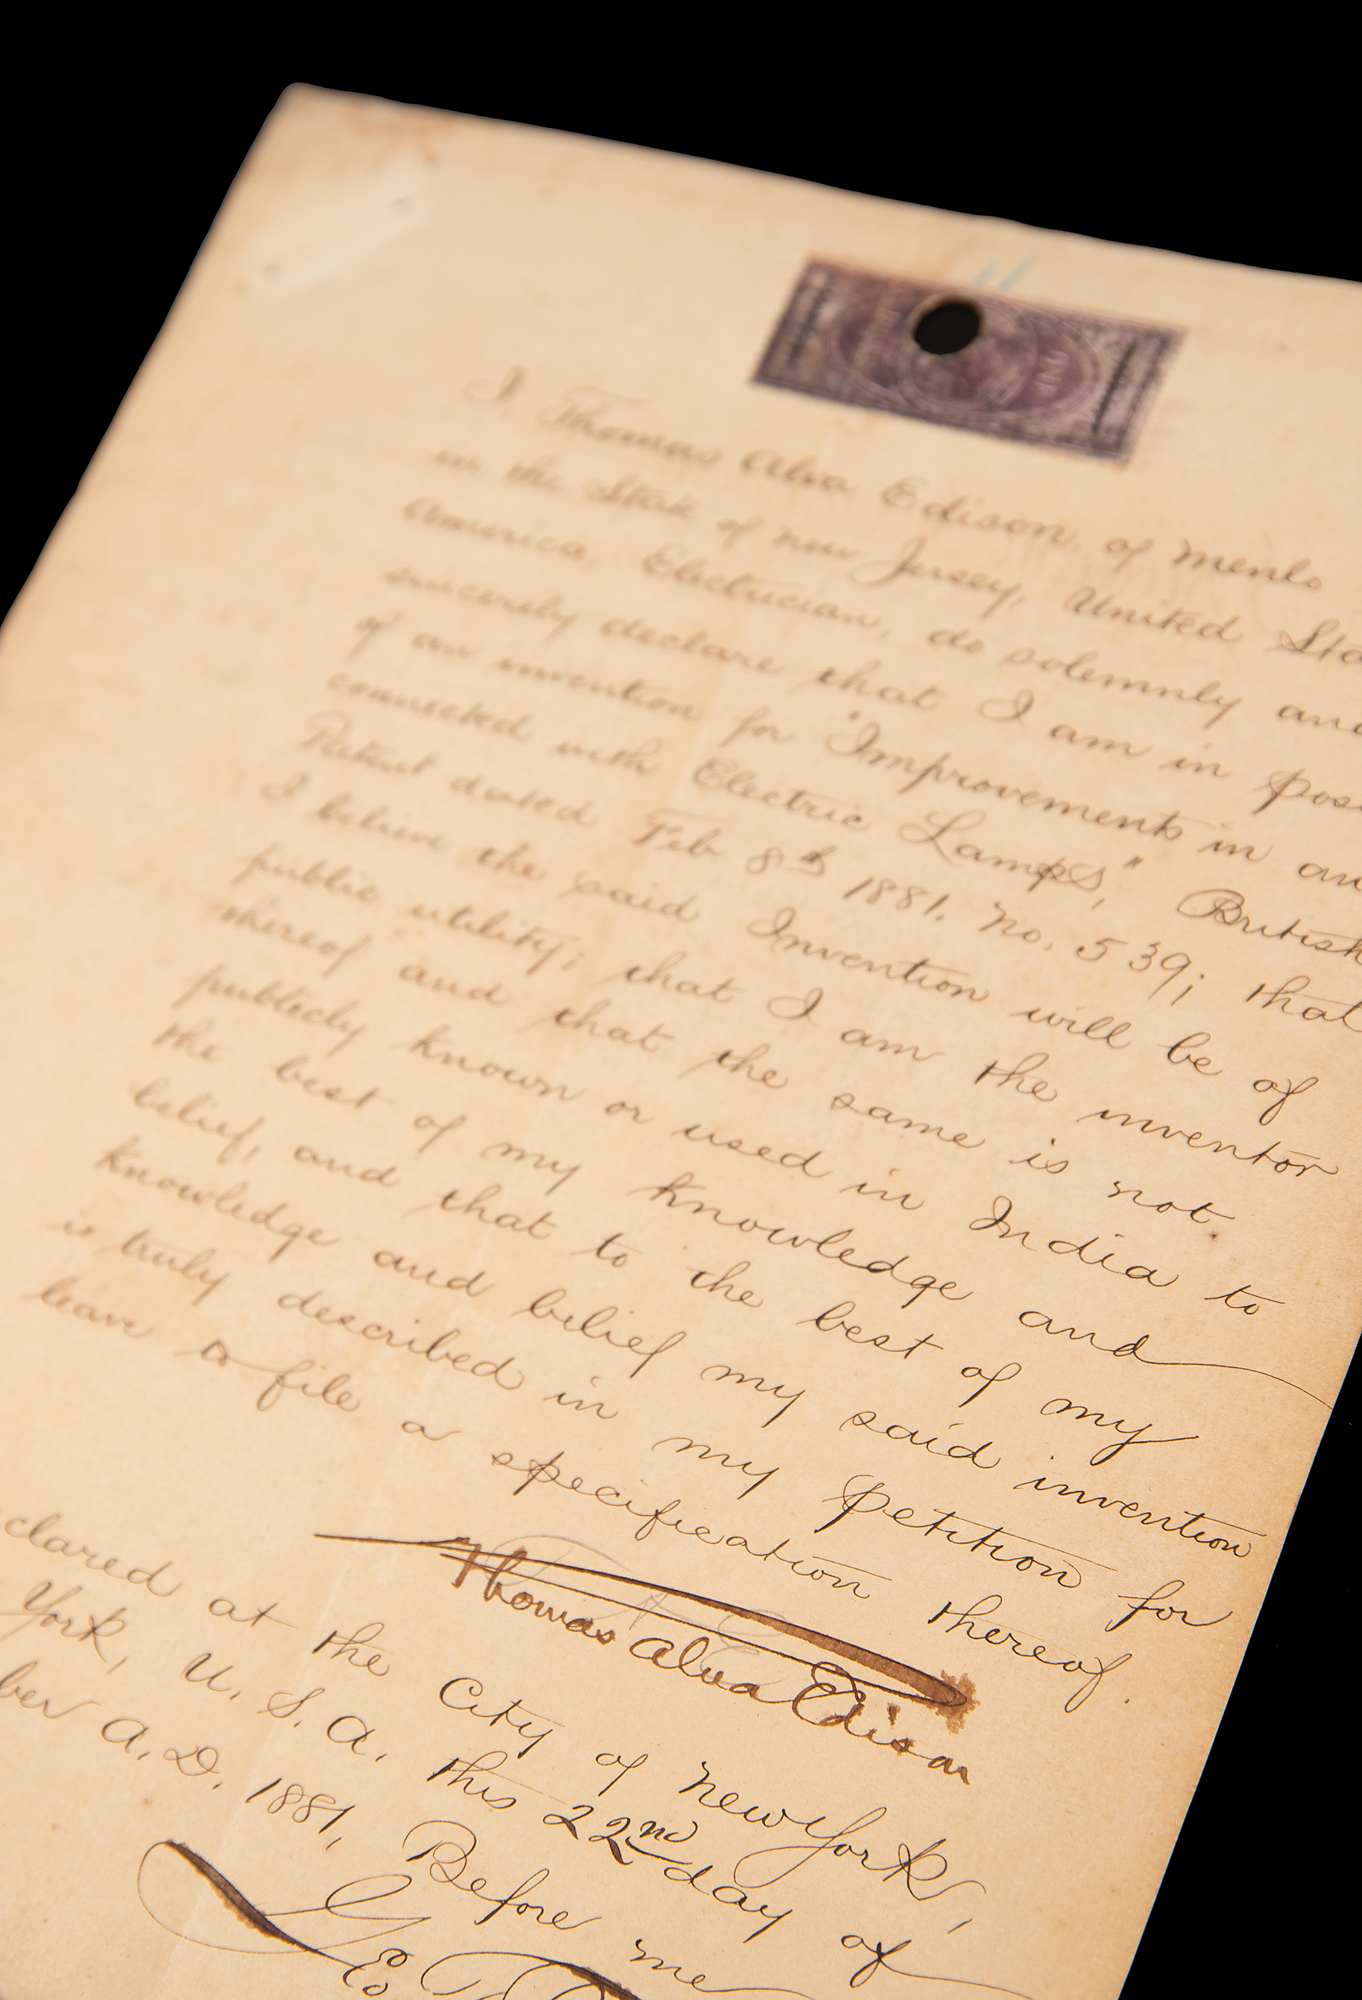 ONE
I, Thomas Alva Edison, of Menlo
in the State of New Jersey, United Sta
America, Electrician, do solemnly and
sincerely declare that I am in poss
of an invention for "Improvements in an
connected with Electric Lamps," British
Patent dated Feb 8th 1881. No. 539; that
I believe the said Invention will be of
public utility; that I am the inventor
thereof and that the same is not.
publicly known or used in India to
the best of my knowledge and
belief, and that to the best of my
knowledge and belief my said invention
is truly described in my petition for
leave to file a specification thereof.
Thomas Alva Edison
clared at the City of New York,
York, U. S. A. this 22nd day of
ber A. D. 1881, Before me